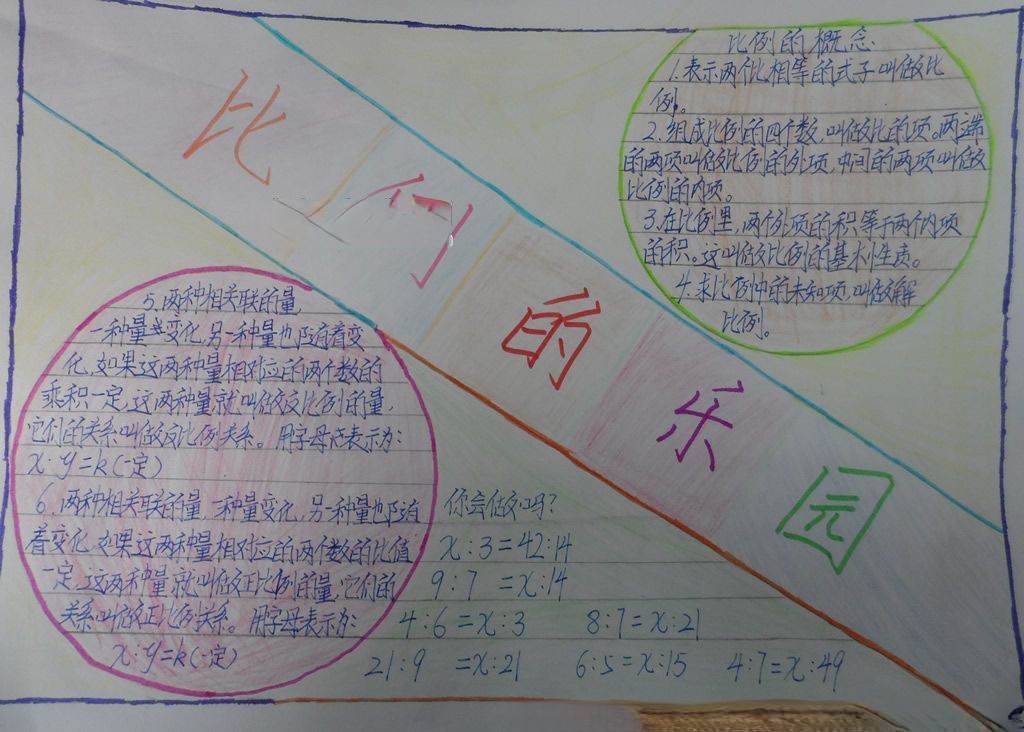 比例的乐园
比例的概念
1.表示两个比相等的式子叫做比
例。
2.组成比例的四个数,叫做比的项。两端
的两项叫做比例的外项,中间的两项叫做
比例的内项。
3.在比例里,两个外项的积等于两个内项
的积。这叫做比例的基本性质。
4.求比例中的未知项,叫做解
比例。
5.两种相关联的量,
一种量变化,另一种量也随着变
化,如果这两种量相对应的两个数的
乘积一定,这两种量就叫做反比例的量,
它们的关系叫做反比例关系。用字母表示为:
x·y=k(一定)
6.两种相关联的量,一种量变化,另一种量也随
着变化,如果这两种量相对应的两个数的比值
一定,这两种量就叫做正比例的量,它们的
关系叫做正比例关系。用字母表示为:
x:y=k(一定)
你会做吗?
x:3=42:14
9:7=x:14
4:6=x:3 8:7=x:21
21:9=x:21 6:5=x:15 4:7=x:49